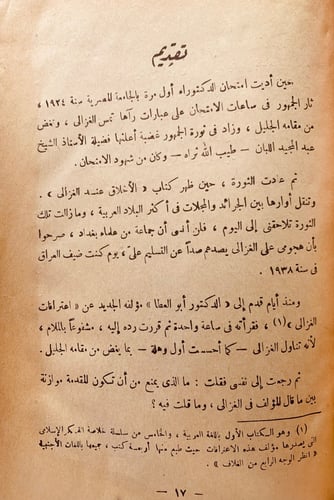 تقديم
حين أديت امتحان الدكتوراه أول مرة بالجامعة المصرية سنة ١٩٢٤ ،
ثار الجمهور في ساعات الامتحان على عبارات رآها تمس الغزالى ، وتغض
من مقامه الجليل ، وزاد فى ثورة الجمهور غضبة أعلنها فضيلة الأستاذ الشيخ
عبد المجيد اللبان – طيب الله ثراه – وكان من شهود الامتحان.
ثم عادت الثورة ، حين ظهر كتاب « الأخلاق عنسد الغزالى » .
وتنقل أوارها بين الجرائد والمجلات فى أكثر البلاد العربية ، ومازالت تلك
الثورة تلاحقنى إلى اليوم ، فلن أنسى أن جماعة من علماء بغداد ، صرحوا
بأن هجومى على الغزالى يصدهم صداً عن التسليم علىّ ، يوم كنت ضيف العراق
فى سنة ١٩٣٨ .
ومنذ أيام قدم إلى « الدكتور أبو العطا » مؤلفه الجديد عن « اعترافات
الغزالى » (١) ، فقرأته فى ساعة واحدة ثم قررت رده إليه ، مشفوعاً بالملام ،
لأنه تناول الغزالى – كما أحسست أول وهلة – بما يغض من مقامه الجليل .
ثم رجعت إلى نفسى فقلت : ما الذى يمنع من أن تكون للمقدمة موازنة
بين ما قال المؤلف فى الغزالى ، وما قلت فيه ؟
(١) وهو الكتاب الأول باللغة العربية ، والخامس من سلسلة خلاصة الفكر الإسلامى
التى يصدرها مؤلف هذه الاعترافات حيث طبع منها أربعة كتب ، جميعها باللغات الأجنبية
« انظر الوجه الرابع من الغلاف » .
– ١٧ –